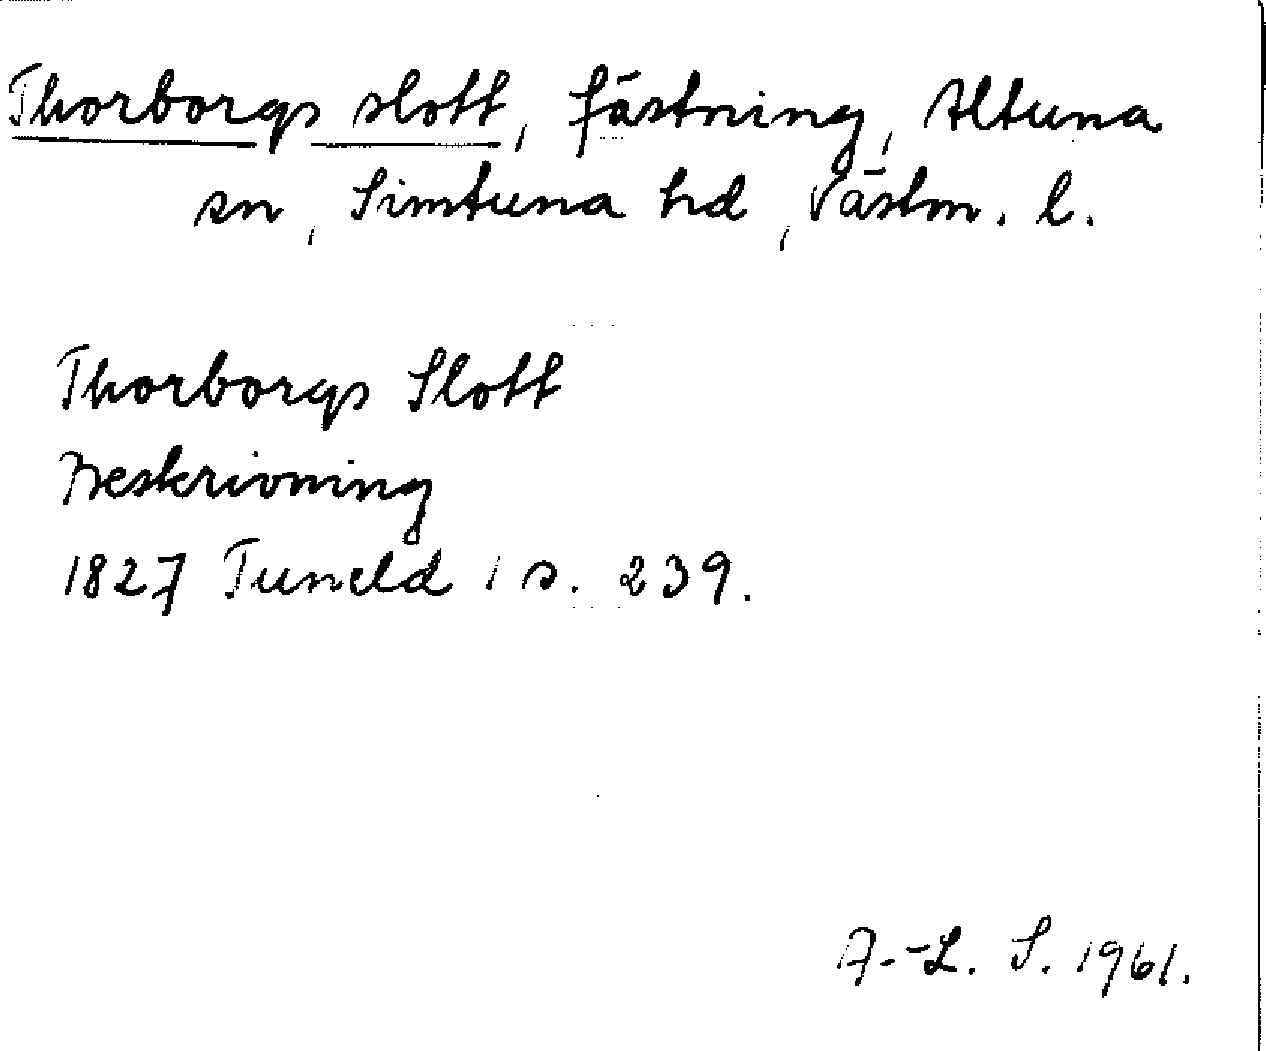 Thorborgs slott, fästning, Altuna
sn, Simtuna hd, Västm. l.
Thorborgs Slott
Beskrivning
1827 Tuneld 1 s. 239.
A.-L. S. 1961.